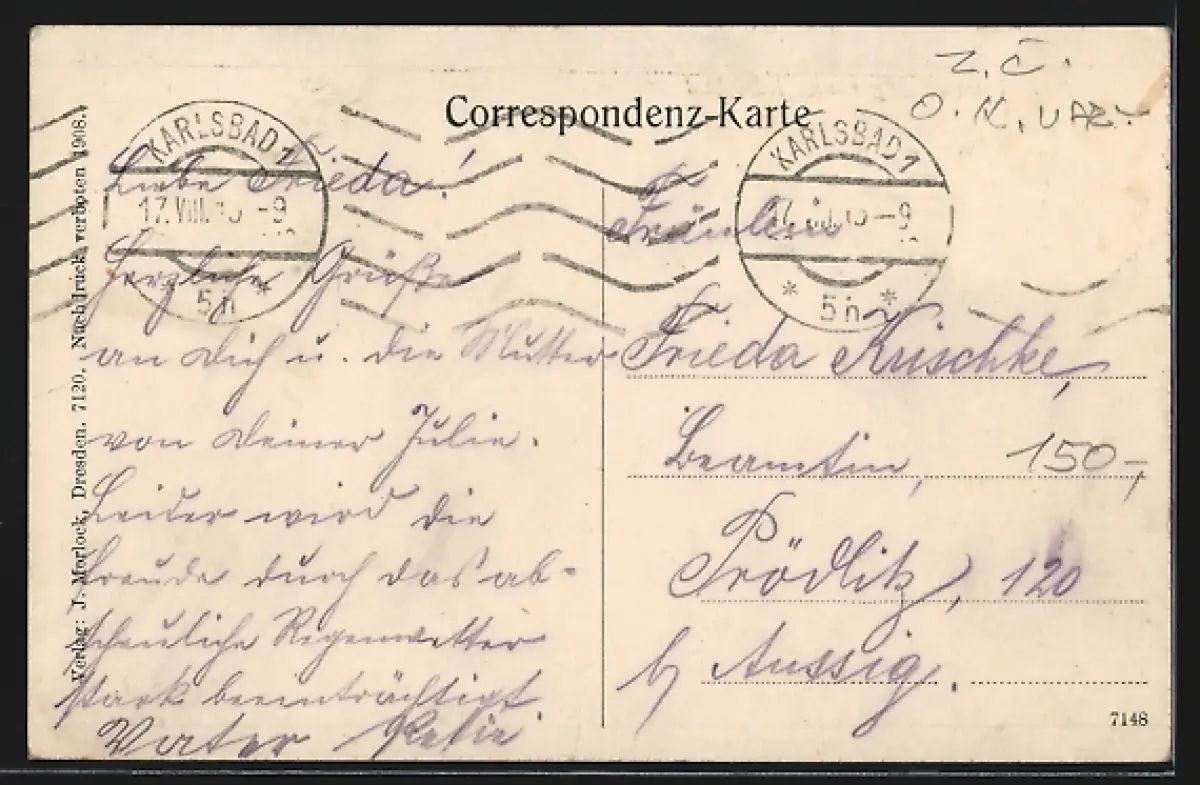 Z. Č.
O. K. VAR.
Correspondenz-Karte
KARLSBAD 1
17.VIII.10-9
* 5n *
KARLSBAD 1
17.VIII.10-9
* 5n *
Liebe Frieda!
Herzliche Grüße
an Dich u. die Mutter
von Deiner Julie.
Leider wird die
Freude durch das ab-
scheuliche Regenwetter
stark beeinträchtigt
Vater
Fräulein
Frieda Krischke,
Beamtin,
150,-
Prödlitz, 120
b/ Aussig.
Verlag: J. Morlock, Dresden. 7120. Nachdruck verboten 1908.
7148